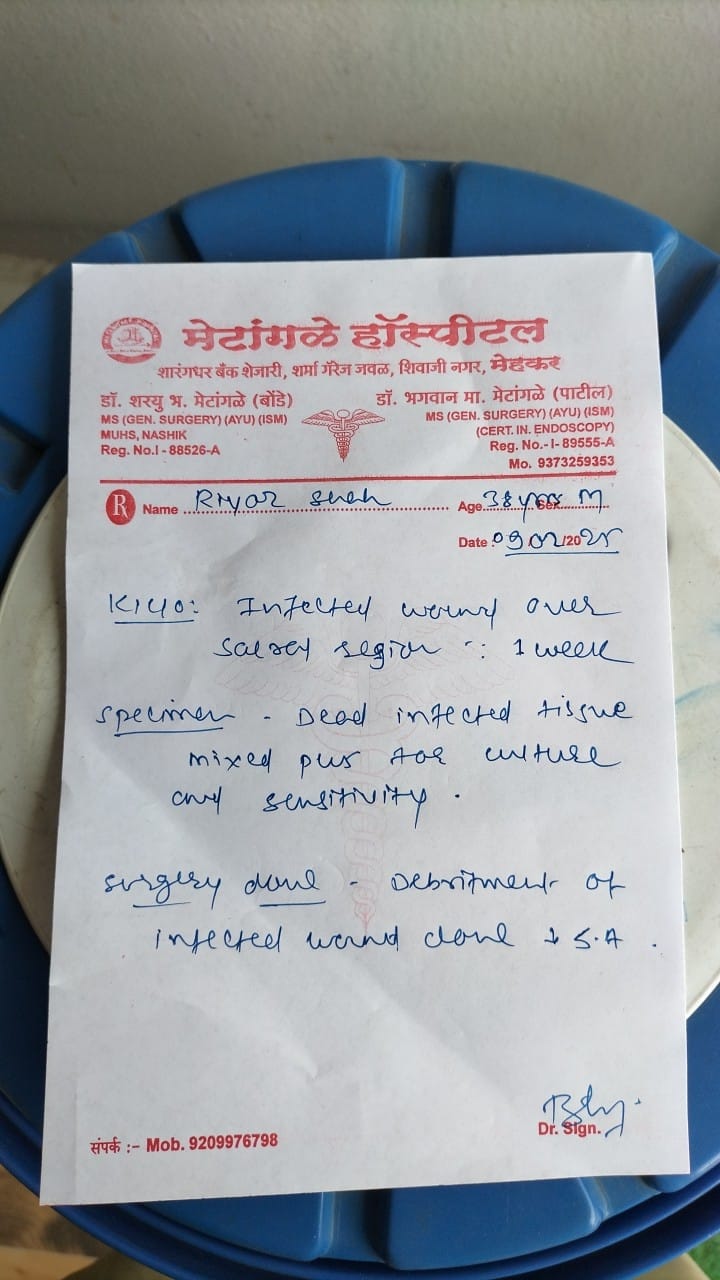 मेटांगळे हॉस्पीटल
शारंगधर बँक शेजारी, शर्मा गॅरेज जवळ, शिवाजी नगर, मेहकर
डॉ. शरयु भ. मेटांगळे (बोंडे)
MS (GEN. SURGERY) (AYU) (ISM)
MUHS, NASHIK
Reg. No.I - 88526-A
डॉ. भगवान मा. मेटांगळे (पाटील)
MS (GEN. SURGERY) (AYU) (ISM)
(CERT. IN. ENDOSCOPY)
Reg. No.- I- 89555-A
Mo. 9373259353
R Name Riyaz Shah Age 38 yrs Sex M
Date 09/02/2025
K/c/o: Infected wound over
sacral region :: 1 week
Specimen - Dead infected tissue
mixed pus for culture
and sensitivity.
Surgery done - Debritment of
infected wound done ↓ S.A.
Dr. Sign.
संपर्क :- Mob. 9209976798